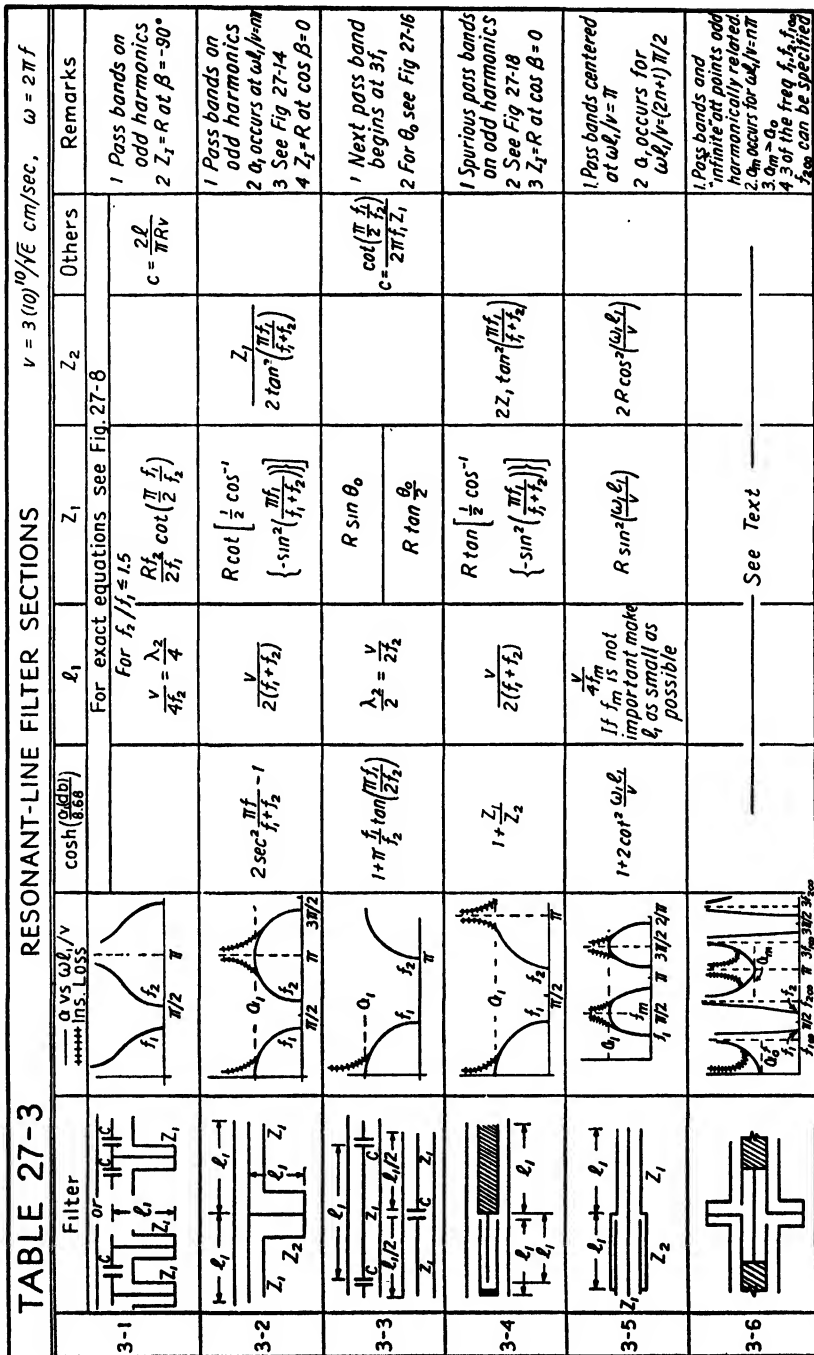 TABLE 27-3 RESONANT-LINE FILTER SECTIONS v = 3(10)¹⁰/√ε cm/sec, ω = 2πf
Filter
— α vs ωℓ₁/v
+++++++ Ins. Loss
cosh(α(db)/8.68)
ℓ₁
Z₁
Z₂
Others
Remarks
3-1
C or C C
ℓ₁
Z₁ Z₁ Z₁
f₁ f₂
π/2 π
For exact equations see Fig. 27-8
For f₂/f₁ ≤ 1.5
v/4f₂ = λ₂/4
Rf₂/2f₁ cot(π/2 f₁/f₂)
C = 2ℓ/πRv
1 Pass bands on
odd harmonics
2 Z_I = R at β = -90°
3-2
ℓ₁ ℓ₁
ℓ₁
Z₁ Z₂ Z₁
α₁
f₁ f₂
π/2 π 3π/2
2 sec² πf/(f₁+f₂) - 1
v/2(f₁+f₂)
R cot [½ cos⁻¹
{-sin²(πf₁/(f₁+f₂))}]
Z₁/2 tan²(πf₁/(f₁+f₂))
1 Pass bands on
odd harmonics
2 α₁ occurs at ωℓ₁/v=nπ
3 See Fig 27-14
4 Z_I = R at cos β = 0
3-3
ℓ₁
C Z₁ C
ℓ₁/2 ℓ₁/2
Z₁ C Z₁
α₁
f₁ f₂
π
1+π f₁/f₂ tan(πf₁/2f₂)
λ₂/2 = v/2f₂
R sin θ₀
R tan θ₀/2
C = cot(π/2 f₁/f₂)/2πf₁Z₁
1 Next pass band
begins at 3f₁
2 For θ₀ see Fig 27-16
3-4
ℓ₁ ℓ₁
ℓ₁
α₁
f₁ f₂
π/2 π
1 + Z₁/Z₂
v/2(f₁+f₂)
R tan [½ cos⁻¹
{-sin²(πf₁/(f₁+f₂))}]
2Z₁ tan²(πf₁/(f₁+f₂))
1 Spurious pass bands
on odd harmonics
2 See Fig 27-18
3 Z_I = R at cos β = 0
3-5
Z₁
ℓ₁ ℓ₁
Z₂ Z₁
α₁
f_m
f₁ π/2 π 3π/2 2/π
1+2 cot² ω₁ℓ₁/v
v/4f_m
If f_m is not
important make
ℓ₁ as small as
possible
R sin²(ω₁ℓ₁/v)
2R cos²(ω₁ℓ₁/v)
1. Pass bands centered
at ωℓ₁/v = π
2 α₁ occurs for
ωℓ₁/v=(2n+1) π/2
3-6
α₀
f₁ f₂
α_m
f₁∞ π/2 f₂∞ π 3f₁∞ 3π/2 3f₂∞
See Text
1. Pass bands and
"infinite" att points odd
harmonically related.
2. α_m occurs for ωℓ₁/v=nπ
3. α_m > α₀
4 3 of the freq f₁, f₂, f₁∞,
f₂∞ can be specified